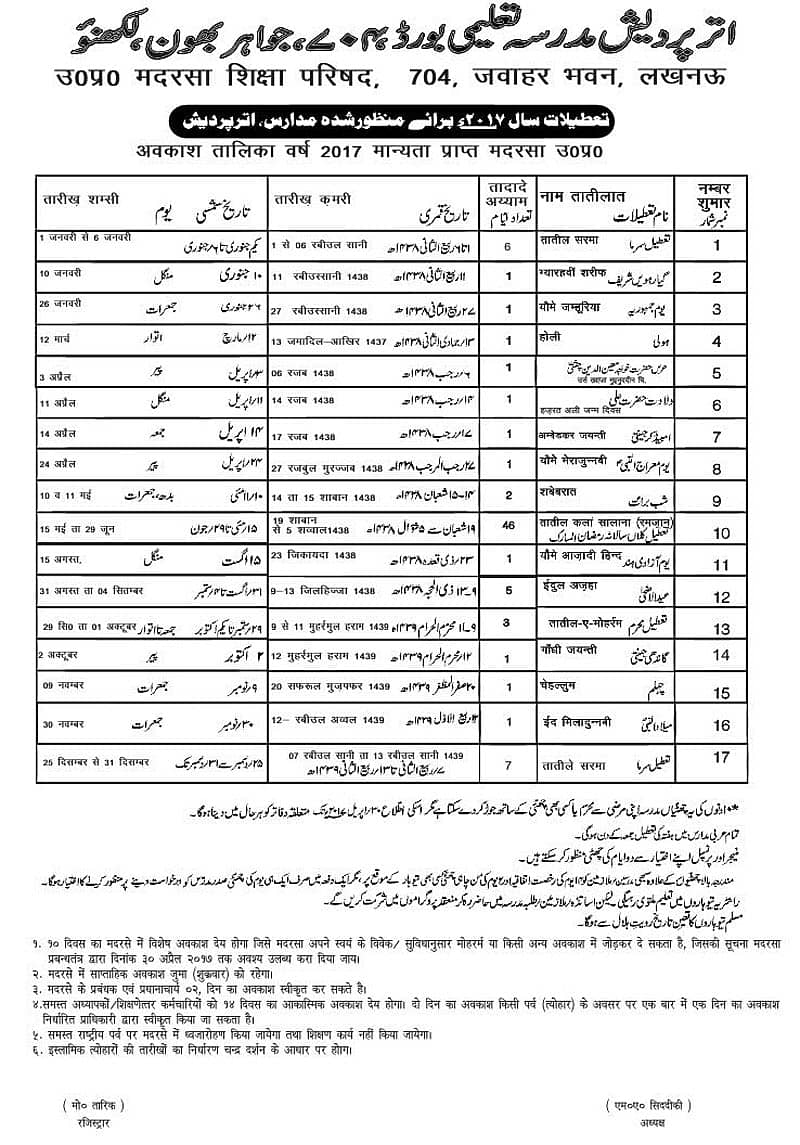 اتر پردیش مدرسہ تعلیمی بورڈ ۷۰۴، جواہر بھون، لکھنؤ
उ०प्र० मदरसा शिक्षा परिषद, 704, जवाहर भवन, लखनऊ
تعطیلات سال ۲۰۱۷ء برائے منظور شدہ مدارس، اتر پردیش
अवकाश तालिका वर्ष 2017 मान्यता प्राप्त मदरसा उ०प्र०
तारीख़ शम्सी तारीख़ क़मरी तादादे अय्याम नाम तातीलात नम्बर शुमार
یوم تاریخ شمسی تاریخ قمری تعداد ایام نام تعطیلات نمبر شمار
1 जनवरी से 6 जनवरी یکم جنوری تا ۶ جنوری 1 से 06 रबीउल सानी ۱ تا ۶ ربیع الثانی ۱۴۳۸ھ 6 तातील सरमा تعطیل سرما 1
10 जनवरी منگل ۱۰ جنوری 11 रबीउस्सानी 1438 ۱۱ ربیع الثانی ۱۴۳۸ھ 1 ग्यारहवीं शरीफ گیارہویں شریف 2
26 जनवरी جمعرات ۲۶ جنوری 27 रबीउस्सानी 1438 ۲۷ ربیع الثانی ۱۴۳۸ھ 1 यौमे जम्हूरिया یوم جمہوریہ 3
12 मार्च اتوار ۱۲ مارچ 13 जमादिल-आखिर 1437 ۱۳ جمادی الثانی ۱۴۳۸ھ 1 होली ہولی 4
3 अप्रैल پیر ۳ اپریل 06 रजब 1438 ۶ رجب ۱۴۳۸ھ 1 عرس حضرت خواجہ معین الدین چشتی 5
11 अप्रैल منگل ۱۱ اپریل 14 रजब 1438 ۱۴ رجب ۱۴۳۸ھ 1 ولادت حضرت علی हज़रत अली जन्म दिवस 6
14 अप्रैल جمعہ ۱۴ اپریل 17 रजब 1438 ۱۷ رجب ۱۴۳۸ھ 1 अम्बेडकर जयन्ती امبیڈکر جینتی 7
24 अप्रैल پیر ۲۴ اپریل 27 रजबुल मुरज्जब 1438 ۲۷ رجب المرجب ۱۴۳۸ھ 1 यौमे मेराजुन्नबी یوم معراج النبی 8
10 व 11 मई بدھ، جمعرات ۱۰ ۱۱ مئی 14 ता 15 शाबान 1438 ۱۴-۱۵ شعبان ۱۴۳۸ھ 2 शबेबरात شب برات 9
15 मई ता 29 जून ۱۵ مئی تا ۲۹ جون 19 शाबान से 5 शव्वाल1438 ۱۹ شعبان سے ۵ شوال ۱۴۳۸ھ 46 तातील कलां सालाना (रमजान) تعطیل کلاں سالانہ رمضان المبارک 10
15 अगस्त, منگل ۱۵ اگست 23 जिकायदा 1438 ۲۳ ذی قعدہ ۱۴۳۸ھ 1 यौमे आज़ादी हिन्द یوم آزادی ہند 11
31 अगस्त ता 04 सितम्बर ۳۱ اگست تا ۴ ستمبر 9-13 जिलहिज्जा 1438 ۹-۱۳ ذی الحجہ ۱۴۳۸ھ 5 ईदुल अज़हा عید الاضحیٰ 12
29 सि० ता 01 अक्टूबर جمعہ تا اتوار ۲۹ ستمبر تا یکم اکتوبر 9 से 11 मुहर्रमुल हराम 1439 ۹-۱۱ محرم الحرام ۱۴۳۹ھ 3 तातील-ए-मोहर्रम تعطیل محرم 13
2 अक्टूबर پیر ۲ اکتوبر 12 मुहर्रमुल हराम 1439 ۱۲ محرم الحرام ۱۴۳۹ھ 1 गाँधी जयन्ती گاندھی جینتی 14
09 नवम्बर جمعرات ۹ نومبر 20 सफरुल मुज़फ्फर 1439 ۲۰ صفر المظفر ۱۴۳۹ھ 1 चेहल्लुम چہلم 15
30 नवम्बर جمعرات ۳۰ نومبر 12- रबीउल अव्वल 1439 ربیع الاول ۱۴۳۹ھ 1 ईद मिलादुन्नबी میلاد النبی 16
25 दिसम्बर से 31 दिसम्बर ۲۵ دسمبر سے ۳۱ دسمبر تک 07 रबीउल सानी ता 13 रबीउल सानी 1439 ۷ ربیع الثانی تا ۱۳ ربیع الثانی ۱۴۳۹ھ 7 तातीले सरमा تعطیل سرما 17
دنوں کی یہ چھٹیاں مدرسہ اپنی مرضی سے محرم یا کسی بھی چھٹی کے ساتھ جوڑ کر دے سکتا ہے مگر اسکی اطلاع ۳۰ اپریل ۲۰۱۷ تک متعلقہ دفاتر کو ہر حال میں دینا ہوگا۔
تمام عربی مدارس میں ہفتہ کی تعطیل جمعہ کے دن ہوگی۔
منیجر اور پرنسپل اپنے اختیار سے دو ایام کی چھٹی منظور کر سکتے ہیں۔
مندرجہ بالا چھٹیوں کے علاوہ بھی مدرسین ملازمین کو ۱۴ یوم کی رخصت اتفاقیہ اور
راشٹریہ تیوہاروں میں تعلیم ملتوی رہیگی لیکن اساتذہ ملازمین طلبہ مدرسہ میں حاضر رہ کر منعقد پروگراموں میں شرکت کریں گے۔
مسلم تیوہاروں کا تعین تاریخ رویت ہلال سے ہوگا۔
१. १० दिवस का मदरसे में विशेष अवकाश देय होगा जिसे मदरसा अपने स्वयं के विवेक/ सुविधानुसार मोहरर्म या किसी अन्य अवकाश में जोड़कर दे सकता है, जिसकी सूचना मदरसा
प्रबन्धतंत्र द्वारा दिनांक ३० अप्रैल २०१७ तक अवश्य उलब्ध करा दिया जाय।
२. मदरसे में साप्ताहिक अवकाश जुमा (शुक्रवार) को रहेगा।
३. मदरसे के प्रबंधक एवं प्रधानाचार्य ०२, दिन का अवकाश स्वीकृत कर सकते है।
४.समस्त अध्यापकों/शिक्षणेत्तर कर्मचारियों को १४ दिवस का आकास्मिक अवकाश देय होगा। दो दिन का अवकाश किसी पर्व (त्योहार) के अवसर पर एक बार में एक दिन का अवकाश
निर्धारित प्राधिकारी द्वारा स्वीकृत किया जा सकता है।
५. समस्त राष्ट्रीय पर्व पर मदरसे में ध्वजारोहण किया जायेगा तथा शिक्षण कार्य नहीं किया जायेगा।
६. इस्लामिक त्योहारों की तारीखों का निर्धारण चन्द्र दर्शन के आधार पर होगा।
( मो० तारिक ) ( एम०ए० सिद्दीकी )
रजिस्ट्रार अध्यक्ष